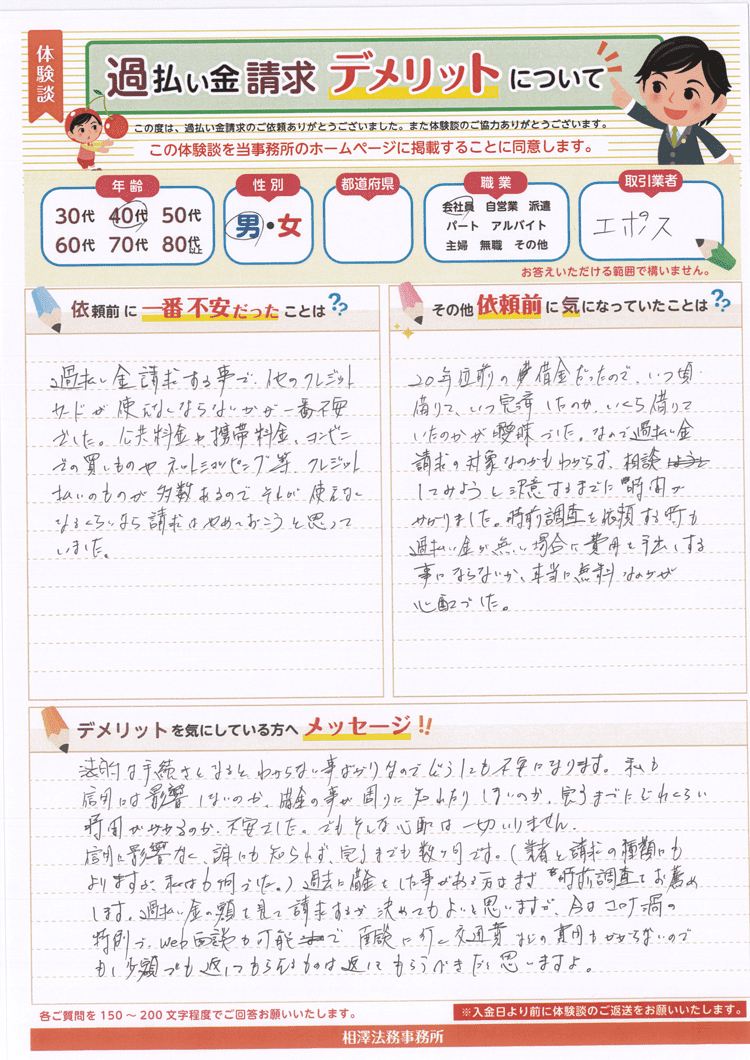 体験談
過払い金請求 デメリットについて
この度は、過払い金請求のご依頼ありがとうございました。また体験談のご協力ありがとうございます。
この体験談を当事務所のホームページに掲載することに同意します。
年齢
30代 40代 50代
60代 70代 80代以上
性別
男・女
都道府県
職業
会社員 自営業 派遣
パート アルバイト
主婦 無職 その他
取引業者
エポス
お答えいただける範囲で構いません。
依頼前に一番不安だったことは??
過払い金請求する事で、他のクレジット
カードが使えなくならないかが一番不安
でした。公共料金や携帯料金、コンビニ
での買いものやネットショッピング等、クレジット
払いのものが多数あるので、それが使えなく
なるくらいなら請求はやめておこうと思って
いました。
その他依頼前に気になっていたことは??
20年位前の借金だったので、いつ頃
借りて、いつ完済したのか、いくら借りて
いたのかが曖昧でした。なので過払い金
請求の対象なのかもわからず、相談
してみようと決意するまでに時間が
かかりました。事前調査を依頼する時も
過払い金が無い場合に費用を手出しする
事にならないか、本当に無料なのかが
心配でした。
デメリットを気にしている方へメッセージ!!
法的な手続きとなると、わからない事ばかりなのでどうしても不安になります。私も
信用には影響しないのか、借金の事が周りに知れたりしないのか、完了までにどれくらい
時間がかかるのか、不安でした。でもそんな心配は一切いりません。
信用に影響なく、誰にも知られず、完了までも数ヶ月です。(業者と請求の種類にも
よりますが、私は
過去に借金をした事がある方はまず事前調査をお薦め
します。過払い金の額を見て請求するか決めてもよいと思いますが、今はコロナ禍の
特例で、web面談も可能で面談に行く交通費などの費用もかからないので
もし少額でも返してもらえるものは返してもらうべきだと思いますよ。
各ご質問を150～200文字程度でご回答お願いいたします。
※入金日より前に体験談のご返送をお願いいたします。
相澤法務事務所